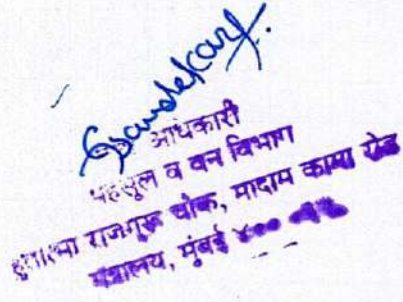 अधिकारी
महसूल व वन विभाग
हुतात्मा राजगुरू चौक, मादाम कामा रोड
मंत्रालय, मुंबई ४००